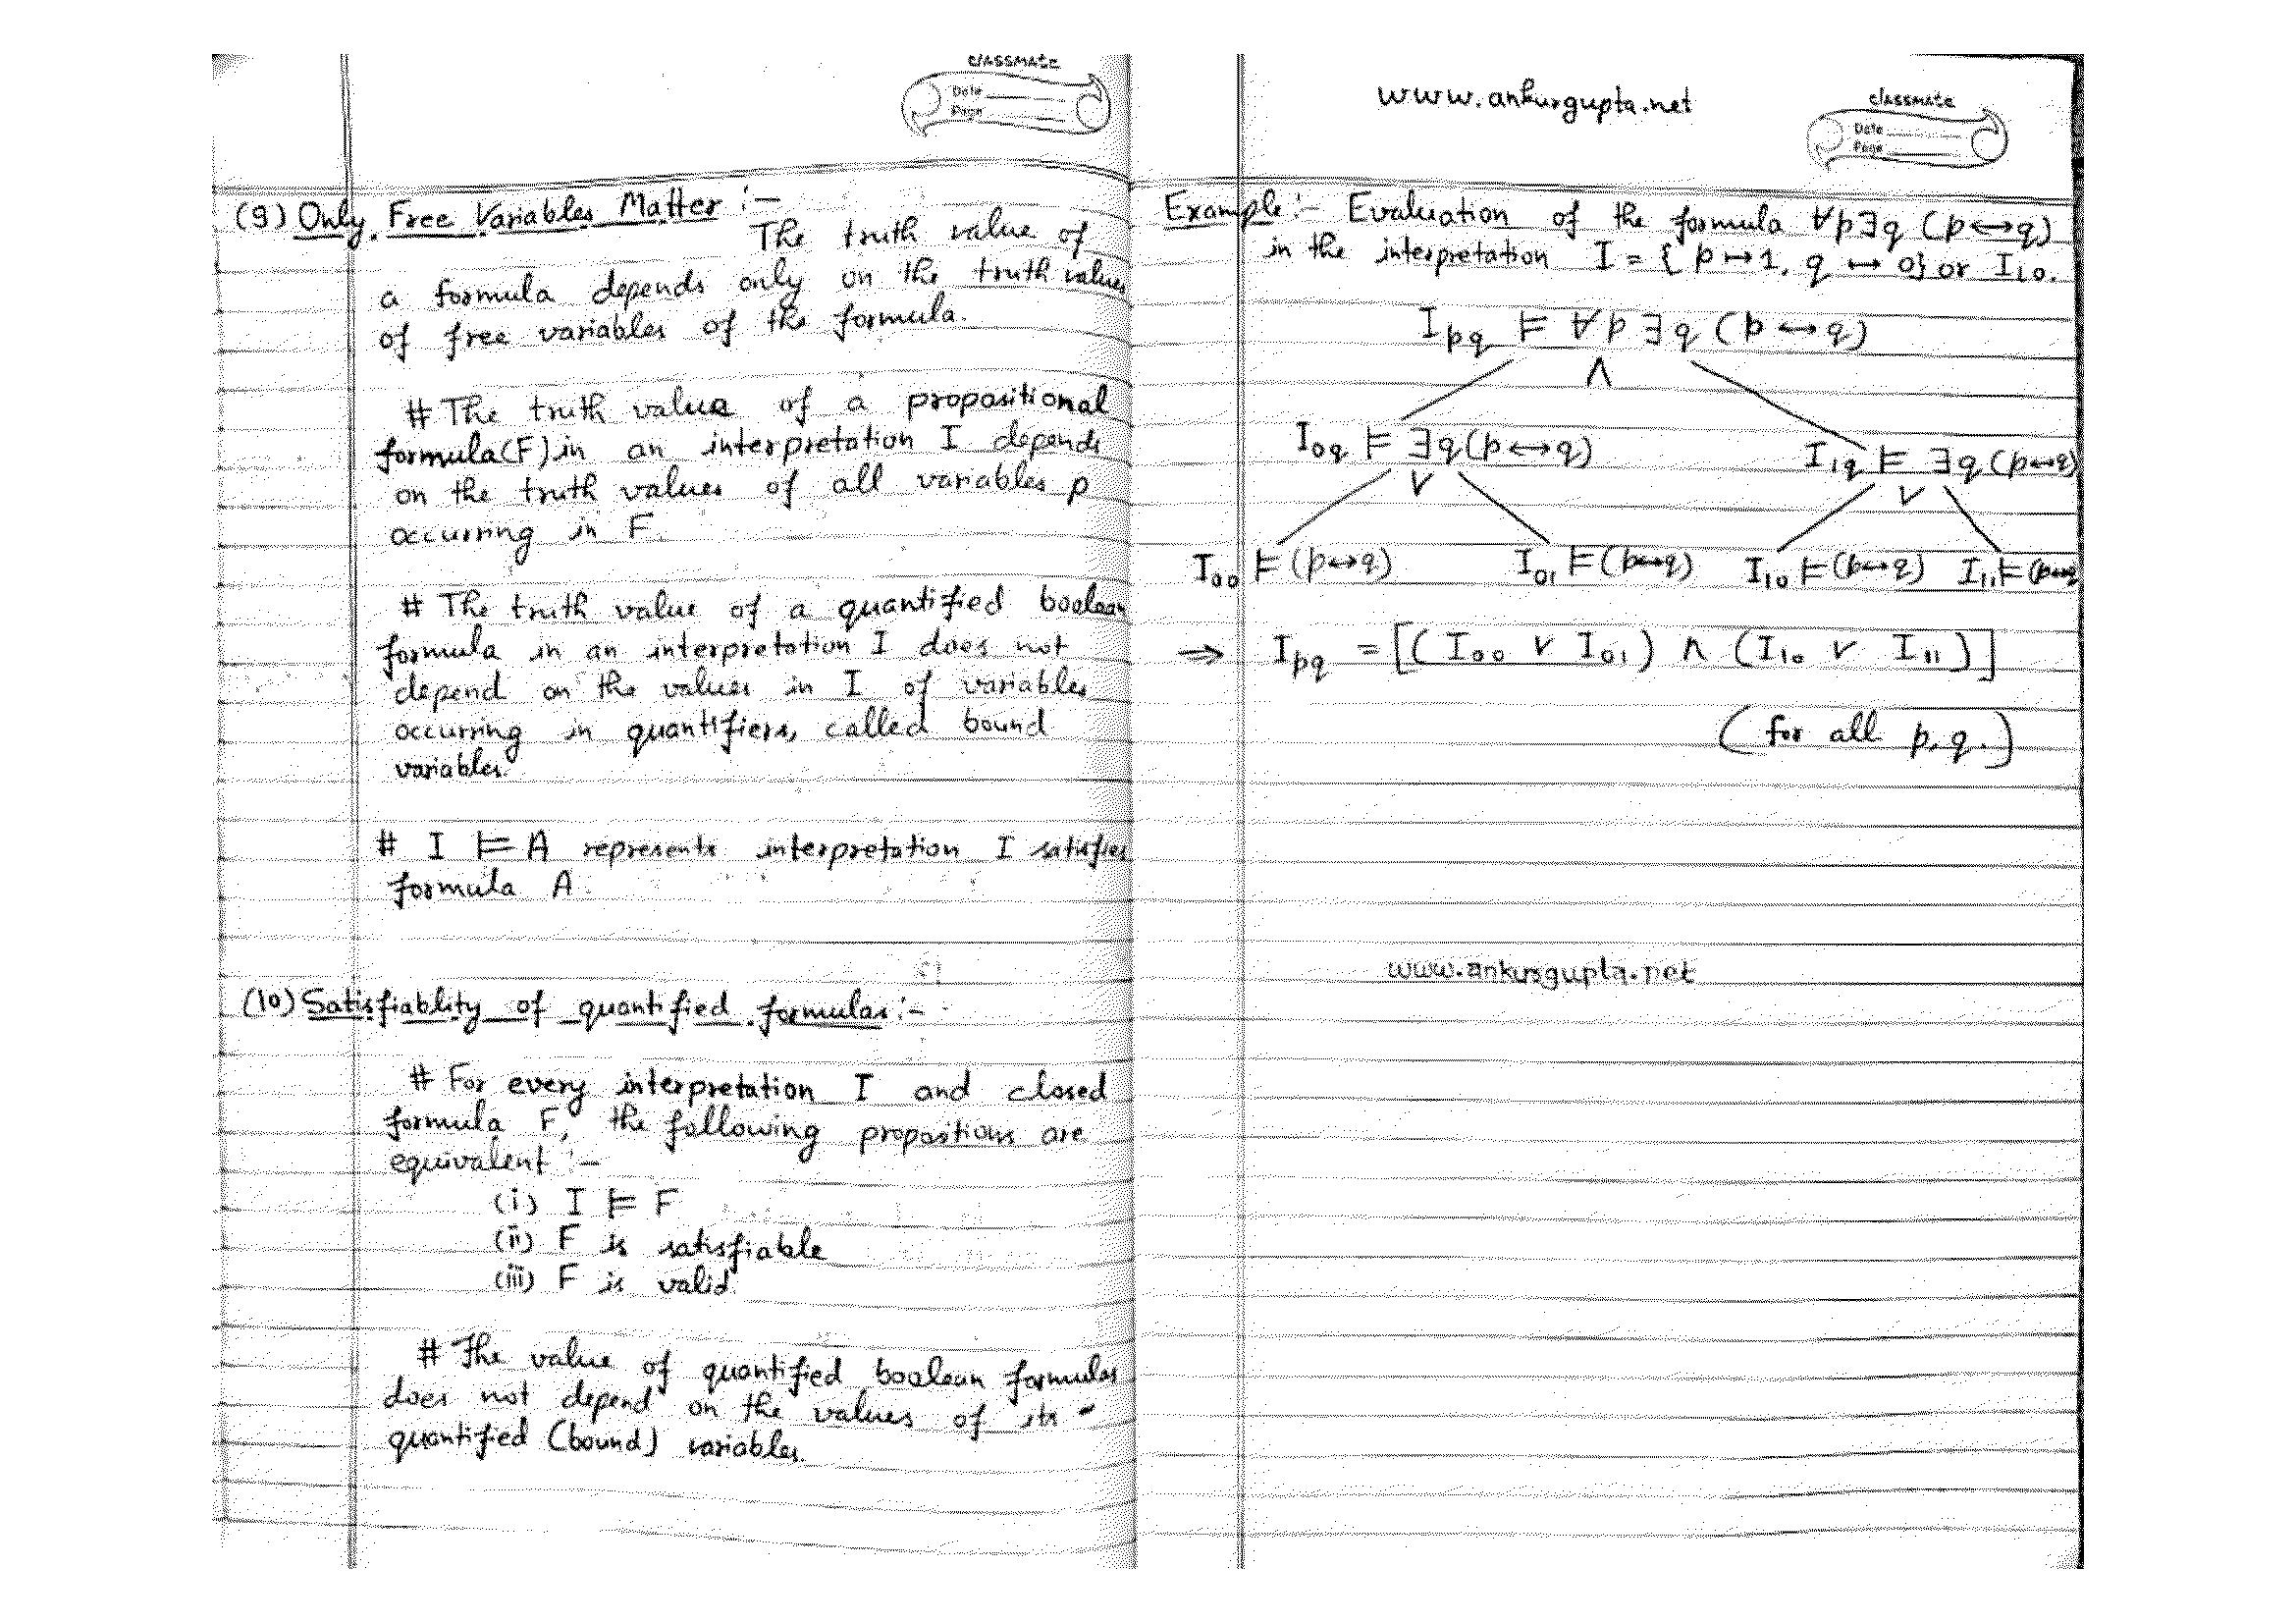 classmate
Date
Page
(9) Only Free Variables Matter :-
The truth value of
a formula depends only on the truth values
of free variables of the formula.
# The truth value of a propositional
formula(F) in an interpretation I depends
on the truth values of all variables p
occurring in F.
# The truth value of a quantified boolean
formula in an interpretation I does not
depend on the values in I of variables
occurring in quantifiers, called bound
variables.
# I ⊨ A represents interpretation I satisfies
formula A.
(10) Satisfiablity of quantified formulas :-
# For every interpretation I and closed
formula F, the following propositions are
equivalent :-
(i) I ⊨ F
(ii) F is satisfiable
(iii) F is valid.
# The value of quantified boolean formulas
does not depend on the values of its
quantified (bound) variables.
www.ankurgupta.net
classmate
Date
Page
Example :- Evaluation of the formula ∀p∃q (p↔q)
in the interpretation I = {p ↦ 1, q ↦ 0} or I₁₀.
I_pq ⊨ ∀p ∃q (p ↔ q)
∧
I₀q ⊨ ∃q(p↔q) I₁q ⊨ ∃q(p↔q)
∨ ∨
I₀₀ ⊨ (p↔q) I₀₁ ⊨ (p↔q) I₁₀ ⊨ (p↔q) I₁₁ ⊨ (p↔q)
⇒ I_pq = [(I₀₀ ∨ I₀₁) ∧ (I₁₀ ∨ I₁₁)]
(for all p, q.)
www.ankurgupta.net